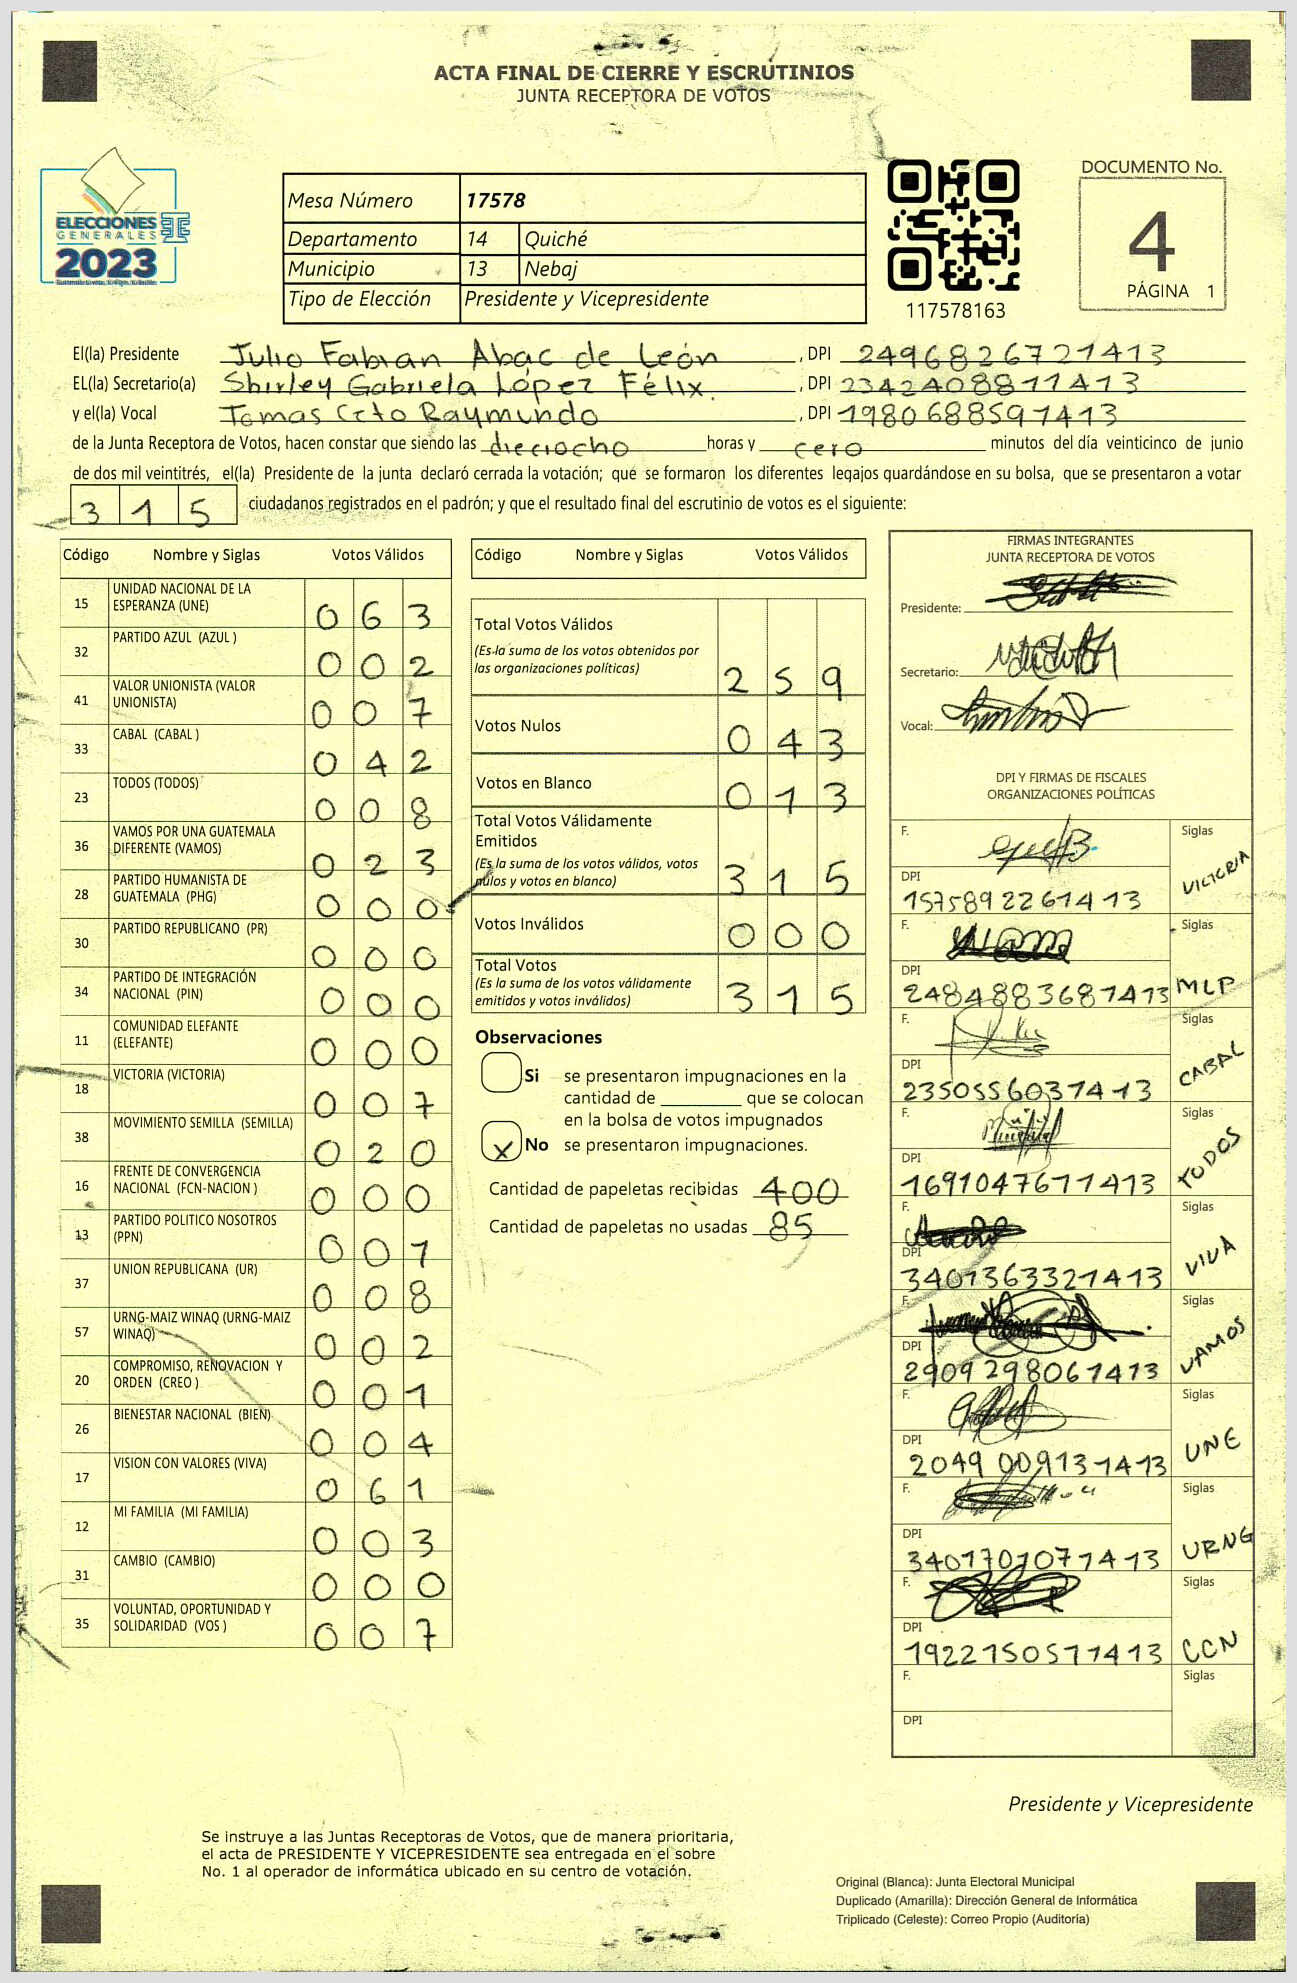 ACTA FINAL DE CIERRE Y ESCRUTINIOS
JUNTA RECEPTORA DE VOTOS
ELECCIONES
GENERALES
2023
Mesa Número 17578
Departamento 14 Quiché
Municipio 13 Nebaj
Tipo de Elección Presidente y Vicepresidente
117578163
DOCUMENTO No.
4
PÁGINA 1
El(la) Presidente Julio Fabian Abac de León, DPI 2496826721413
EL(la) Secretario(a) Shirley Gabriela López Félix., DPI 2342408811413
y el(la) Vocal Tomas Raymundo, DPI 1980688591413
de la Junta Receptora de Votos, hacen constar que siendo las dieciocho horas y cero minutos del día veinticinco de junio
de dos mil veintitrés, el(la) Presidente de la junta declaró cerrada la votación; que se formaron los diferentes legajos guardándose en su bolsa, que se presentaron a votar
315 ciudadanos registrados en el padrón; y que el resultado final del escrutinio de votos es el siguiente:
Código Nombre y Siglas Votos Válidos
15 UNIDAD NACIONAL DE LA ESPERANZA (UNE) 063
32 PARTIDO AZUL (AZUL ) 002
41 VALOR UNIONISTA (VALOR UNIONISTA) 007
33 CABAL (CABAL ) 042
23 TODOS (TODOS) 008
36 VAMOS POR UNA GUATEMALA DIFERENTE (VAMOS) 023
28 PARTIDO HUMANISTA DE GUATEMALA (PHG) 000
30 PARTIDO REPUBLICANO (PR) 000
34 PARTIDO DE INTEGRACIÓN NACIONAL (PIN) 000
11 COMUNIDAD ELEFANTE (ELEFANTE) 000
18 VICTORIA (VICTORIA) 007
38 MOVIMIENTO SEMILLA (SEMILLA) 020
16 FRENTE DE CONVERGENCIA NACIONAL (FCN-NACION ) 000
13 PARTIDO POLITICO NOSOTROS (PPN) 001
37 UNION REPUBLICANA (UR) 008
57 URNG-MAIZ WINAQ (URNG-MAIZ WINAQ) 002
20 COMPROMISO, RENOVACION Y ORDEN (CREO ) 001
26 BIENESTAR NACIONAL (BIEN) 004
17 VISION CON VALORES (VIVA) 061
12 MI FAMILIA (MI FAMILIA) 003
31 CAMBIO (CAMBIO) 000
35 VOLUNTAD, OPORTUNIDAD Y SOLIDARIDAD (VOS ) 007
Código Nombre y Siglas Votos Válidos
Total Votos Válidos
(Es la suma de los votos obtenidos por
las organizaciones políticas) 259
Votos Nulos 043
Votos en Blanco 013
Total Votos Válidamente
Emitidos
(Es la suma de los votos válidos, votos
nulos y votos en blanco) 315
Votos Inválidos 000
Total Votos
(Es la suma de los votos válidamente
emitidos y votos inválidos) 315
Observaciones
Si se presentaron impugnaciones en la
cantidad de ________ que se colocan
en la bolsa de votos impugnados
x No se presentaron impugnaciones.
Cantidad de papeletas recibidas 400
Cantidad de papeletas no usadas 85
FIRMAS INTEGRANTES
JUNTA RECEPTORA DE VOTOS
Presidente:
Secretario:
Vocal:
DPI Y FIRMAS DE FISCALES
ORGANIZACIONES POLÍTICAS
F. Siglas
DPI 1575892261413 VICTORIA
F. Siglas
DPI 2484883681413 MLP
F. Siglas
DPI 2350556031413 CABAL
F. Siglas
DPI 1691047611413 TODOS
F. Siglas
DPI 3401363321413 VIVA
F. Siglas
DPI 2909298061413 VAMOS
F. Siglas
DPI 2049009131413 UNE
F. Siglas
DPI 3401701071413 URNG
F. Siglas
DPI 1922150511413 CCN
F. Siglas
DPI
Presidente y Vicepresidente
Se instruye a las Juntas Receptoras de Votos, que de manera prioritaria,
el acta de PRESIDENTE Y VICEPRESIDENTE sea entregada en el sobre
No. 1 al operador de informática ubicado en su centro de votación.
Original (Blanca): Junta Electoral Municipal
Duplicado (Amarilla): Dirección General de Informática
Triplicado (Celeste): Correo Propio (Auditoría)